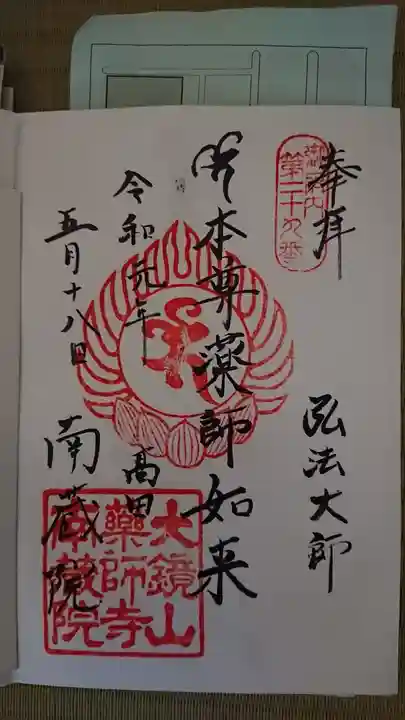 奉拝
第二十九番
弘法大師
本尊薬師如来
令和元年
五月十八日
高田
南蔵院
大鏡山
薬師寺
南蔵院